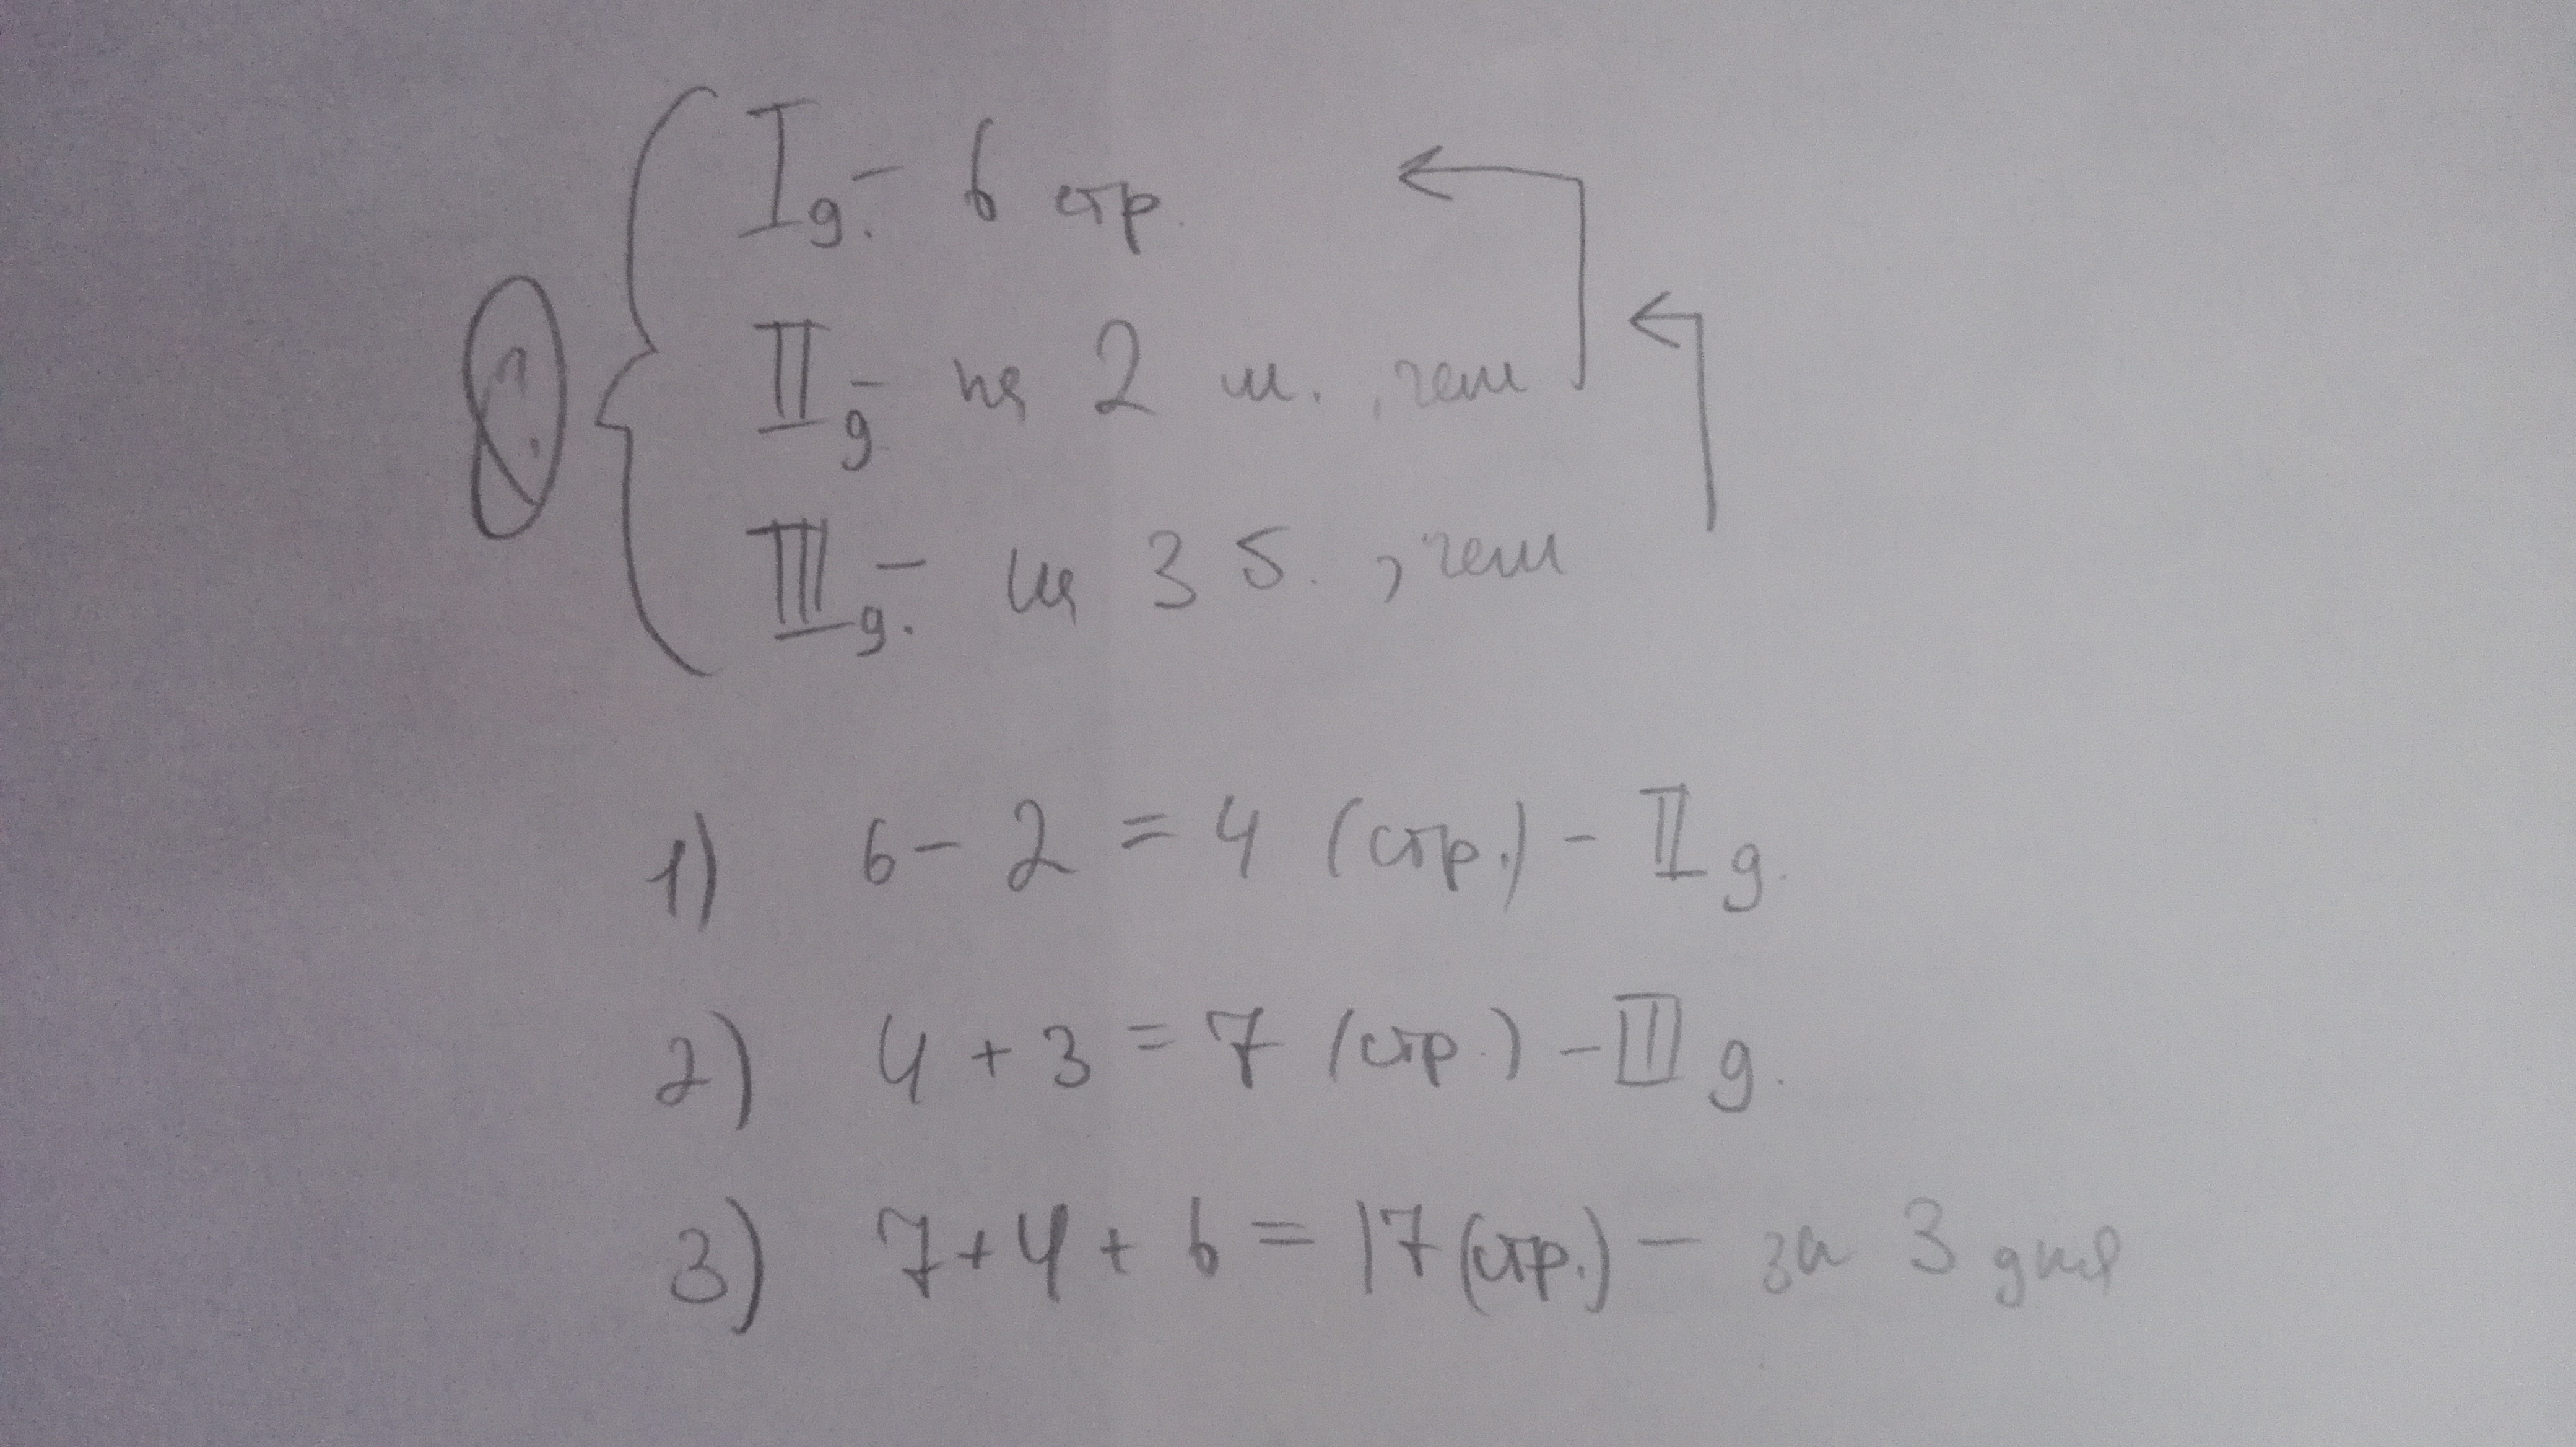 I д. - 6 стр.
? II д - на 2 м., чем
III д. - на 3 б., чем
1) 6 - 2 = 4 (стр.) - II д.
2) 4 + 3 = 7 (стр.) - III д.
3) 7 + 4 + 6 = 17 (стр.) - за 3 дня